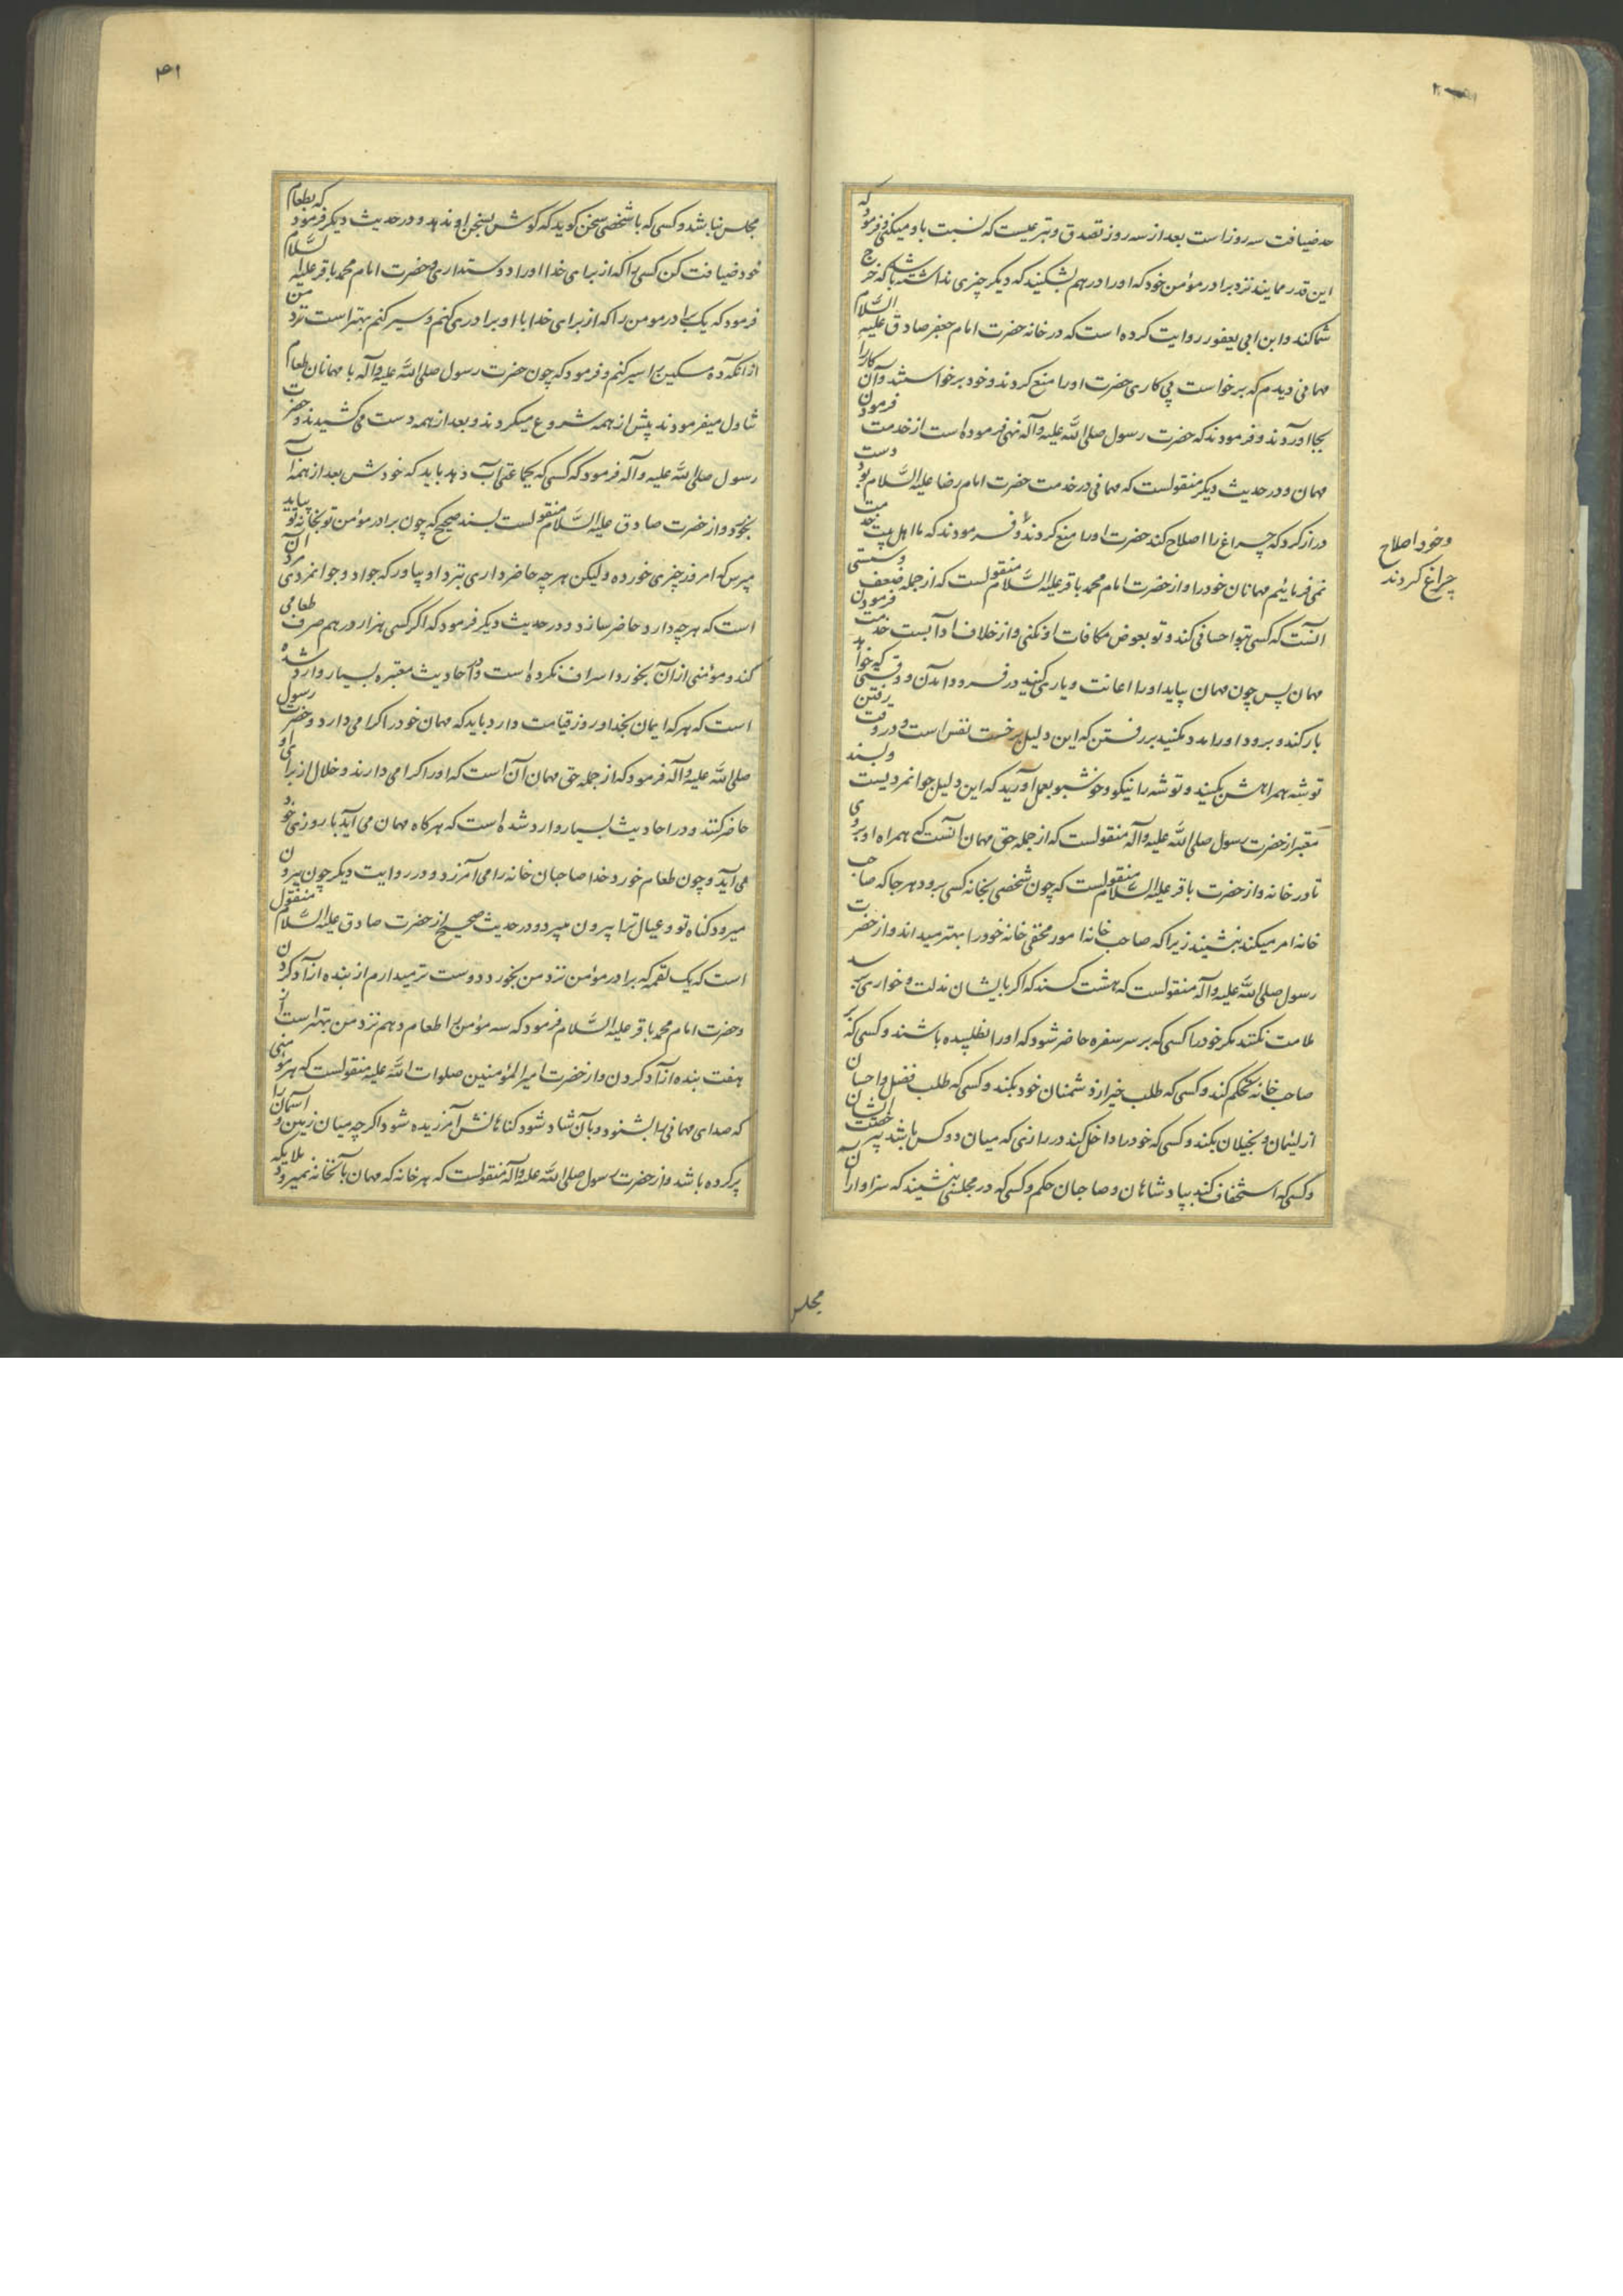 حد ضیافت سه روز است بعد از سه روز تصدق و تبرعیست که نسبت باو میکنی و فرمود که
این قدر ممایند نزد برادر مؤمن خود که او را درهم بشکنید که دیگر چیزی نداشته باشد که خرج
شما کند و ابن ابی یعفور روایت کرده است که در خانه حضرت امام جعفر صادق علیه السّلام
مهمانی دیدم که برخواست پی کاری حضرت او را منع کردند و خود برخواستند و آن کار را
بجا آوردند و فرمودند که حضرت رسول صلی الله علیه وآله نهی فرموده است از خدمت فرمودن
مهمان و در حدیث دیگر منقولست که مهمانی در خدمت حضرت امام رضا علیه السّلام بود دست
دراز کرد که چراغ را اصلاح کند حضرت او را منع کردند و فرمودند که ما اهل بیت خدمت
وخود اصلاح
چراغ کردند
نمی فرمائیم مهمانان خود را و از حضرت امام محمد باقر علیه السّلام منقولست که از جمله ضعف و سستی
آنست که کسی بتو احسانی کند و تو بعوض مکافات او نکنی و از خلاف ادابست خدمت فرمودن
مهمان پس چون مهمان بیاید او را اعانت و یاری کنید در فرود آمدن و وقتی که خواهد
بار کند و برود او را مدد مکنید بر رفتن که این دلیل بر خست نفس است و در وقت رفتن
توشه همراهش بکنید و توشه را نیکو و خوشبو بعمل آورید که این دلیل جوانمردیست و بسند
معتبر از حضرت رسول صلی الله علیه وآله منقولست که از جمله حق مهمان آنست که همراه او بروی
تا در خانه و از حضرت باقر علیه السّلام منقولست که چون شخصی بخانه کسی برود هر جا که صاحب
خانه امر میکند بنشیند زیرا که صاحب خانه امور مخفی خانه خود را بهتر میداند و از حضرت
رسول صلی الله علیه وآله منقولست که هشت کسند که اگر بایشان مذلت و خواری برسد
ملامت نکنند مگر خود را کسی که بر سر سفره حاضر شود که او را نطلبیده باشند و کسی که بر
صاحب خانه تحکم کند و کسی که طلب خیر از دشمنان خود بکند و کسی که طلب فضل و احسان
از لئیمان و بخیلان بکند و کسی که خود را داخل کند در رازی که میان دو کس باشد بی رخصت ایشان
و کسی که استخفاف کند بپادشاهان و صاحبان حکم و کسی که در مجلسی بنشیند که سزاوار آن
مجلس
۴۱
مجلس نباشد و کسی که با شخصی سخن گوید که گوش بسخن او ندهد و در حدیث دیگر فرمود که بطعام
خود ضیافت کن کسی را که از برای خدا او را دوست داری و حضرت امام محمد باقر علیه السّلام
فرمود که یک برادر مومن را که از برای خدا با او برادری کنم و سیر کنم بهتر است نزد من
از آنکه ده مسکین را سیر کنم و فرمود که چون حضرت رسول صلی الله علیه وآله با مهمانان طعام
تناول میفرمودند پیش از همه شروع میکردند و بعد از همه دست می کشیدند و حضرت
رسول صلی الله علیه وآله فرمود که کسی که بجماعتی آب دهد باید که خودش بعد از همه آب
بخورد و از حضرت صادق علیه السّلام منقولست بسند صحیح که چون برادر مؤمن تو بخانه تو بیاید
مپرس که امروز چیزی خورده ولیکن هر چه حاضر داری نزد او بیاور که جواد و جوانمرد آن مردی
است که هر چه دارد حاضر سازد و در حدیث دیگر فرمود که اگر کسی هزار درهم صرف طعامی
کند و مؤمنی از آن بخورد اسراف نکرده است و در احادیث معتبره بسیار وارد شده
است که هر که ایمان بخدا و روز قیامت دارد باید که مهمان خود را گرامی دارد و حضرت رسول
صلی الله علیه وآله فرمود که از جمله حق مهمان آن است که او را گرامی دارند و خلال از برای او
حاضر کنند و در احادیث بسیار وارد شده است که هرگاه مهمان می آید با روزی خود
می آید و چون طعام خورد خدا صاحبان خانه را می آمرزد و در روایت دیگر چون بیرون
میرود گناه تو و عیال ترا بیرون میبرد و در حدیث صحیح از حضرت صادق علیه السّلام منقول
است که یک لقمه که برادر مؤمن نزد من بخورد دوست تر میدارم از بنده آزاد کردن
و حضرت امام محمد باقر علیه السّلام فرمود که سه مؤمن را طعام دهم نزد من بهتر است از
هفت بنده آزاد کردن و از حضرت امیر المؤمنین صلوات الله علیه منقولست که هر مؤمنی
که صدای مهمانی را بشنود و بآن شاد شود گناهانش آمرزیده شود اگرچه میان زمین و آسمان را
پر کرده باشد و از حضرت رسول صلی الله علیه وآله منقولست که هر خانه که مهمان بآنخانه نمیرود ملایکه